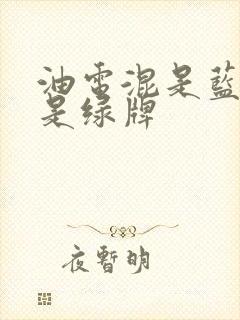 油電混是藍
是绿牌
夜暫明